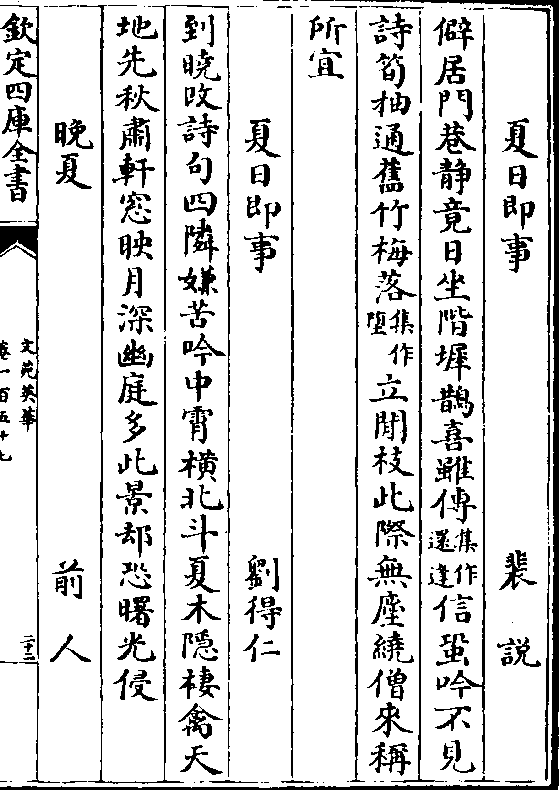 夏日即事 裴說
僻居門巷静竟日坐階墀鵲喜雖傳集作還逢信蛩吟不見
詩筍抽通舊竹梅落集作墮立閒枝此際無塵繞僧來稱
所宜
夏日即事 劉得仁
到曉改詩句四隣嫌苦吟中霄橫北斗夏木隱棲禽天
地先秋肅軒窓映月深幽庭多此景却恐曙光侵
晚夏 前人
欽定四庫全書
文苑英華
卷一百五十七